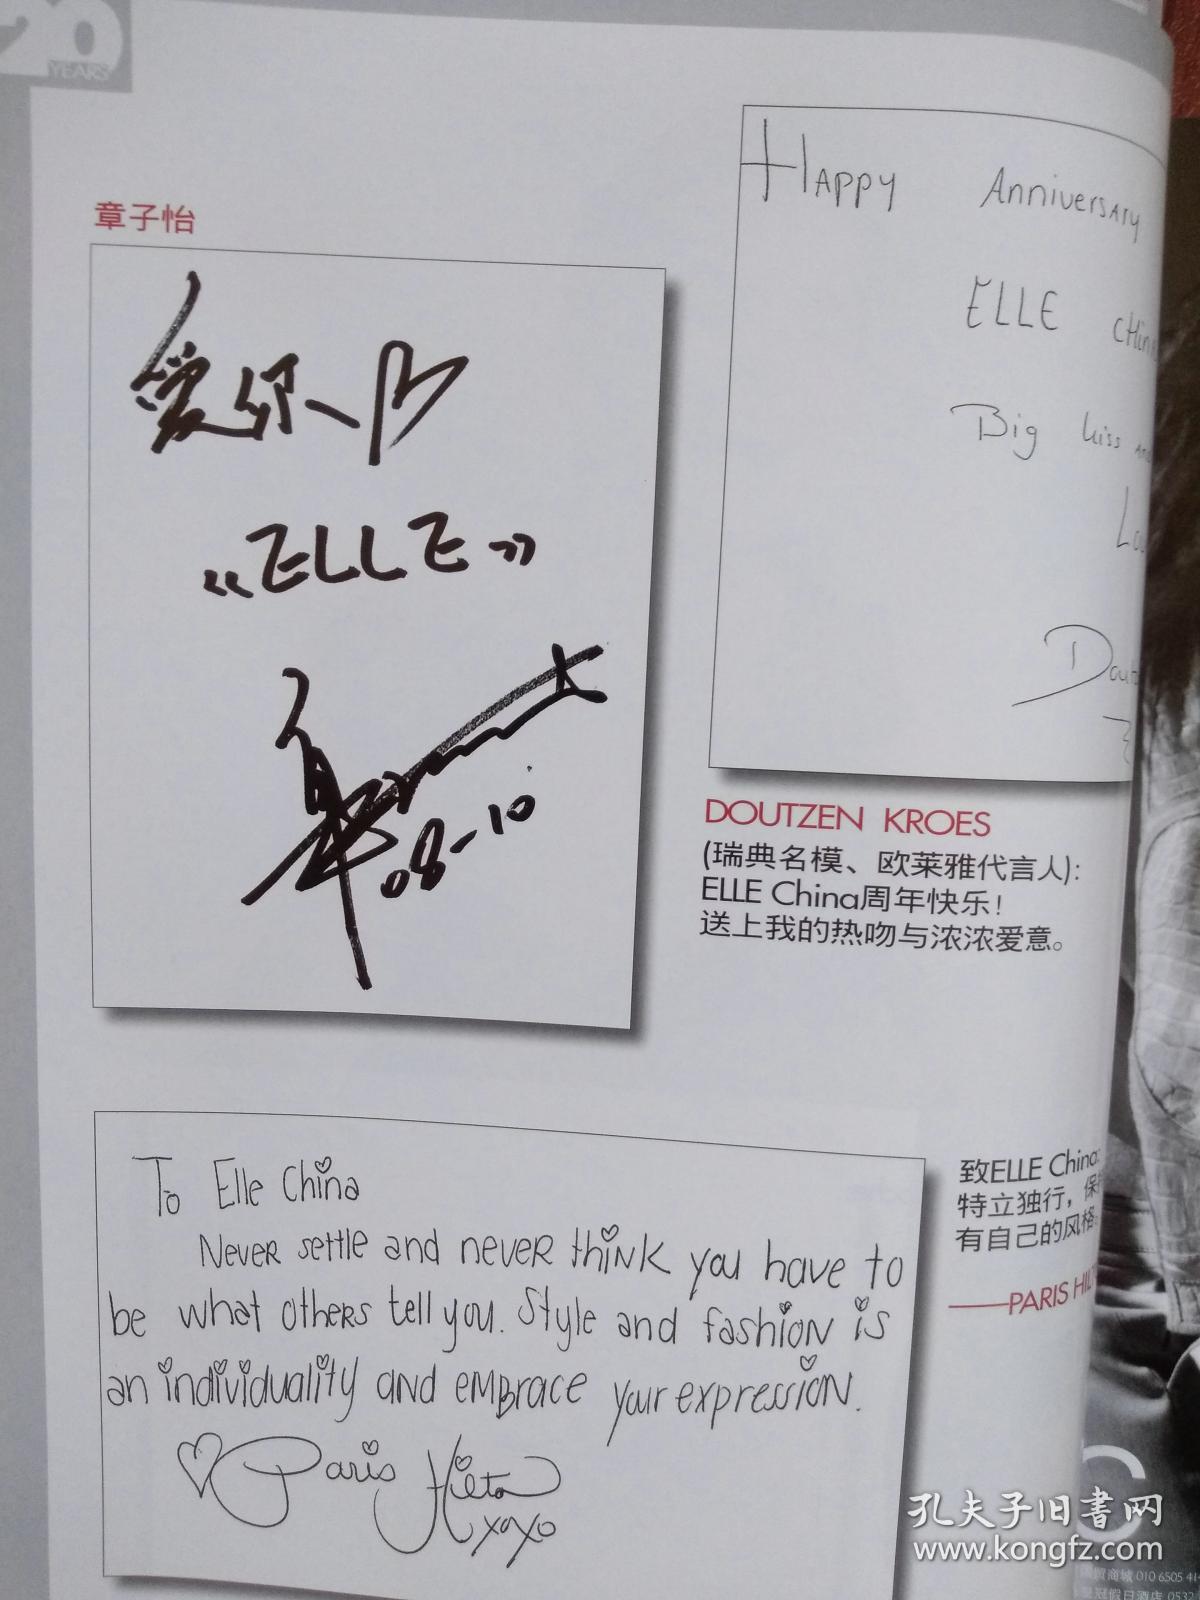 20
YEARS
章子怡
爱你
《ELLE》
08-10
HAPPY Anniversary
ELLE
Big kiss
DOUTZEN KROES
(瑞典名模、欧莱雅代言人):
ELLE China周年快乐!
送上我的热吻与浓浓爱意。
To Elle China
Never settle and never think you have to
be what others tell you. Style and fashion is
an individuality and embrace your expression.
Paris Hilton
xoxo
致ELLE China:
特立独行,保
有自己的风格
——PARIS
孔夫子旧书网
www.kongfz.com
商城 010 6505
冠假日酒店 0532